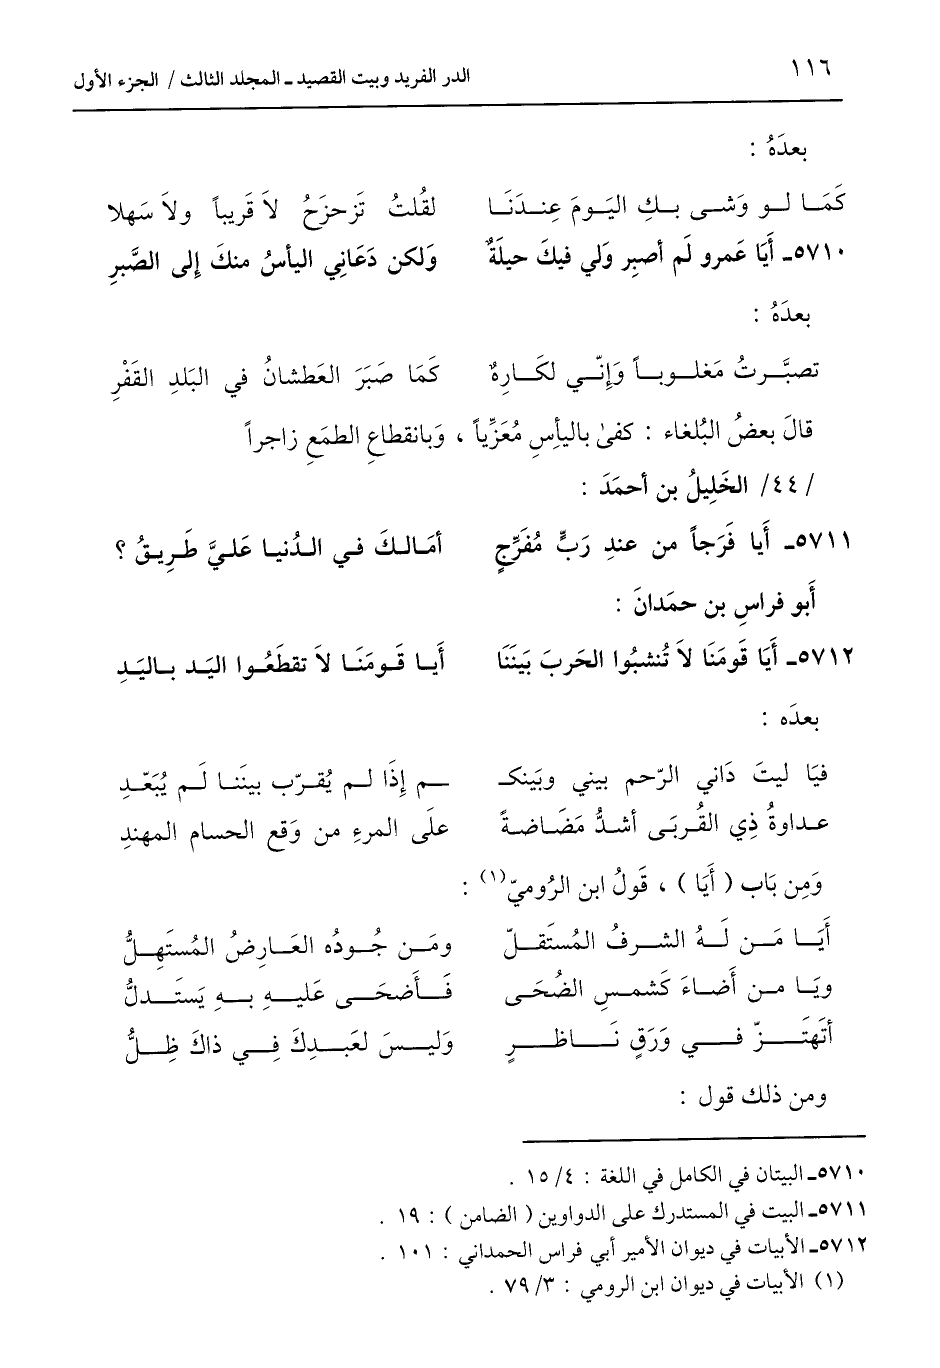 ١١٦ الدر الفريد وبيت القصيد ـ المجلد الثالث / الجزء الأول
بعدَهُ :
كَمَا لو وَشى بكِ اليَومَ عِندَنَا لقُلتُ تَزحزَحُ لاَ قَريباً ولاَ سَهلا
٥٧١٠ـ أَيَا عَمرو لَم أصبِر وَلي فيكَ حيلَةٌ وَلكن دَعَاني اليأسُ منكَ إلى الصَّبرِ
بعدَهُ :
تصبَّرتُ مَغلوباً وَإنّي لكَارِهٌ كَمَا صَبَرَ العَطشانُ في البَلدِ القَفْرِ
قالَ بعضُ البُلغاء : كفىٰ باليأسِ مُعَزِّياً ، وَبانقطاعِ الطمَعِ زاجراً
/ ٤٤/ الخَلِيلُ بن أحمَدَ :
٥٧١١ـ أَيا فَرَجاً من عندِ رَبٍّ مُفَرِّجٍ أمَالكَ في الدُنيا عَليَّ طَرِيقُ ؟
أَبو فراسِ بن حمَدانَ :
٥٧١٢ـ أَيَا قَومَنَا لاَ تُنشبُوا الحَربَ بَينَنَا أَيا قَومَنَا لاَ تقطَعُوا اليَد باليَدِ
بعدَه :
فيَا ليتَ دَاني الرّحم بيني وبَينكـ ـم إذَا لم يُقرّب بينَنا لَم يُبَعّدِ
عداوةُ ذِي القُربَى أشدُّ مَضَاضةً علَى المرءِ من وَقع الحسام المهندِ
وَمِن بَاب ( أَيَا ) ، قَولُ ابن الرُوميّ(١) :
أَيا مَن لَهُ الشرفُ المُستَقلّ ومَن جُودُه العَارضُ المُستَهلُّ
ويَا من أَضاءَ كَشمسِ الضُحَى فَأضحَى عَليهِ بهِ يَستَدلُّ
أتَهتَزّ في وَرَقٍ نَاظرٍ وَليسَ لعَبدِكَ فِي ذاكَ ظِلُّ
ومن ذلك قول :
٥٧١٠ـ البيتان في الكامل في اللغة : ٤/ ١٥ .
٥٧١١ـ البيت في المستدرك على الدواوين ( الضامن ) : ١٩ .
٥٧١٢ـ الأبيات في ديوان الأمير أبي فراس الحمداني : ١٠١ .
(١) الأبيات في ديوان ابن الرومي : ٣/ ٧٩ .